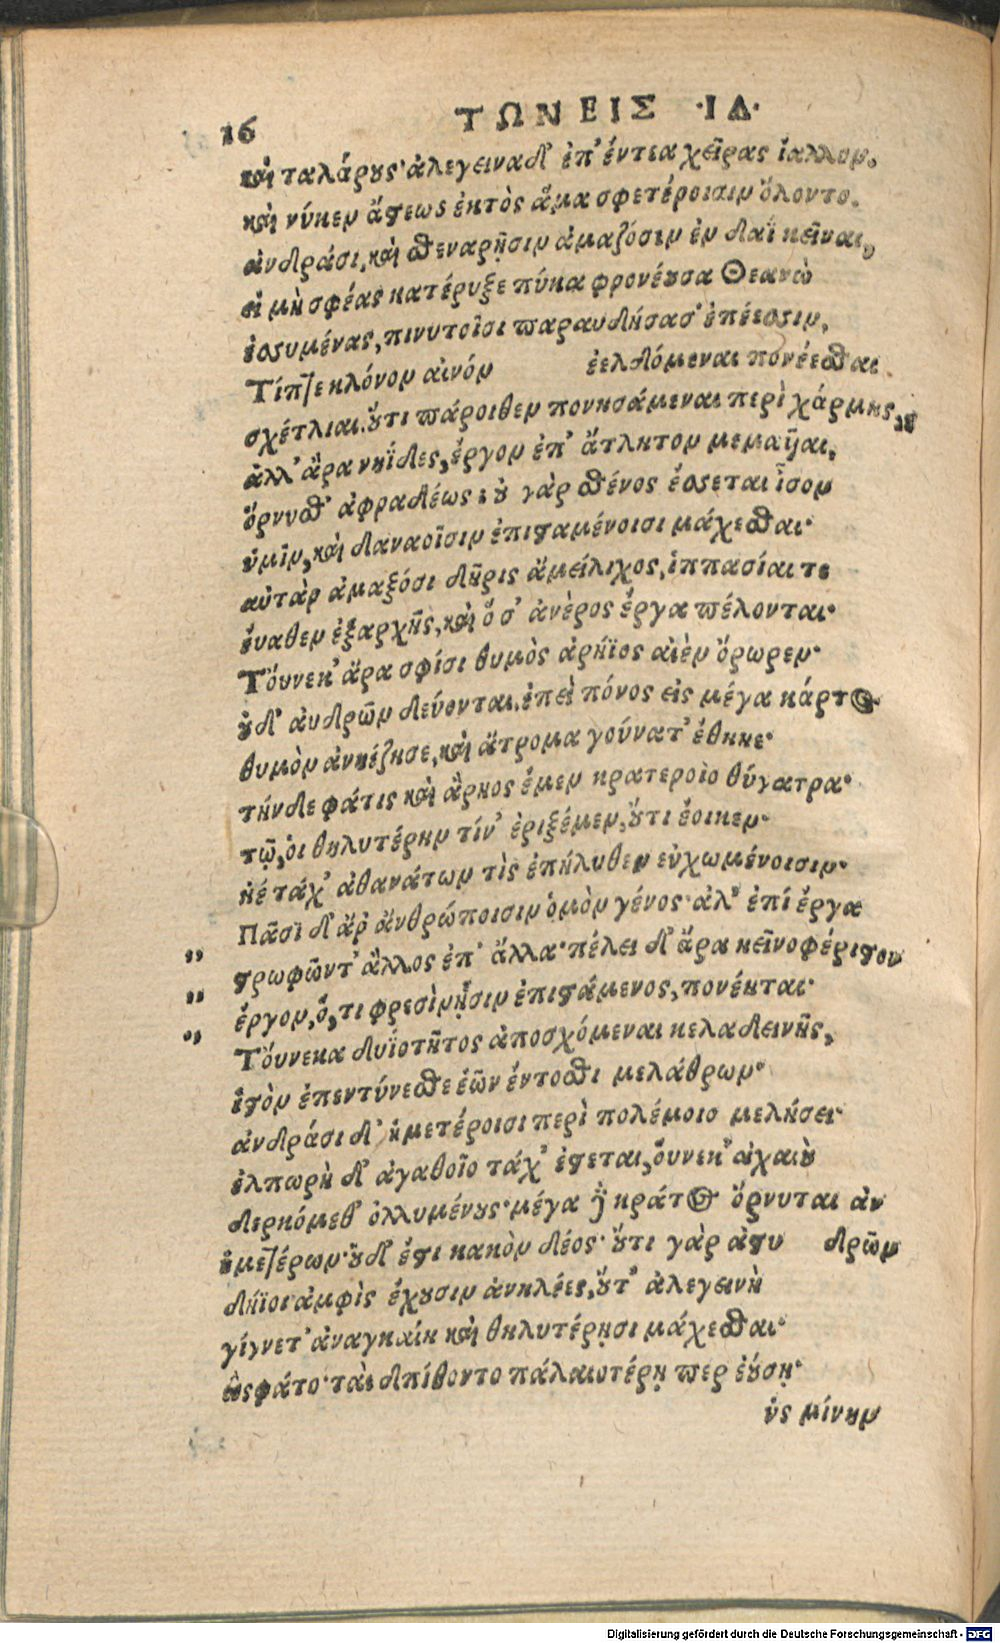 16 ΤΩΝ ΕΙΣ ·ΙΔ·
καὶ ταλάρους· ἀλεγεινὰ δ' ἐπ' ἔντεα χεῖρας ἴαλλον.
καὶ νύ κεν ἄστεως ἐκτὸς ἅμα σφετέροισιν ὄλοντο.
ἀνδράσι, καὶ σθεναρῇσιν ἀμαζόσιν ἐν δαῒ κεῖναι,
εἰ μὴ σφέας κατέρυξε πύκα φρονέουσα Θεανὼ
ἐσσυμένας, πινυτοῖσι παραυδήσασ' ἐπέεσσιν,
Τίπτε κλόνον αἰνὸν ἐελδόμεναι πονέεσθαι
σχέτλιαι. οὔτι πάροιθεν πονησάμεναι περὶ χάρμης,
ἀλλ' ἄρα νηΐδες, ἔργον ἐπ' ἄτλητον μεμαυῖαι,
ὄρνυσθ' ἀφραδέως; οὐ γὰρ σθένος ἔσσεται ἶσον
ὑμῖν, καὶ δαναοῖσιν ἐπισταμένοισι μάχεσθαι·
αὐτὰρ ἀμαξόσι δῆρις ἀμείλιχος, ἱππασίαι τε
εὔαθεν ἐξ ἀρχῆς, καὶ ὅσ' ἀνέρος ἔργα πέλονται·
Τοὔνεκ' ἄρα σφίσι θυμὸς ἀρήϊος αἰὲν ὄρωρεν·
οὐδ' ἀνδρῶν δεύονται, ἐπεὶ πόνος εἰς μέγα κάρτος
θυμὸν ἀνηέξησε, καὶ ἄτρομα γούνατ' ἔθηκε·
τὴν δὲ φάτις καὶ ἄρηος ἔμεν κρατεροῖο θύγατρα·
τῷ, οἱ θηλυτέρην τίν' ἐριξέμεν, οὔτι ἔοικεν·
ἠέ τάχ' ἀθανάτων τὶς ἐπήλυθεν εὐχωμένοισιν·
Πᾶσι δ' ἄρ' ἀνθρώποισιν ὁμὸν γένος· ἀλ' ἐπί ἔργα
,, στρωφῶντ' ἄλλος ἐπ' ἄλλα· πέλει δ' ἄρα κεῖνο φέριστον
,, ἔργον, ὅ, τι φρεσὶν ᾗσιν ἐπιστάμενος, πονέηται·
,, Τοὔνεκα δυϊοτῆτος ἀποσχόμεναι κελαδεινῆς,
ἱστὸν ἐπεντύνεσθε ἑῶν ἔντοσθι μελάθρων·
ἀνδράσι δ' ἡμετέροισι περὶ πολέμοιο μελήσει·
ἐλπωρὴ δ' ἀγαθοῖο τάχ' ἔσεται, οὕνεκ' ἀχαιοὺ
δερκόμεθ' ὀλλυμένους· μέγα δὲ κράτος ὄρνυται ἀν
ἡμετέρων· οὐδ' ἔστι κακὸν δέος· οὔτι γὰρ ἄστυ δρῶν
δήϊοι ἀμφὶς ἔχουσιν ἀνηλέες, οὔτ' ἀλεγεινὴ
γίγνετ' ἀναγκαίη καὶ θηλυτέρῃσι μάχεσθαι·
ὣς φάτο· ταὶ δ' ἐπίθοντο παλαιοτέρῃ περ ἐούσῃ·
ὑσμίνην
Digitalisierung gefördert durch die Deutsche Forschungsgemeinschaft - DFG